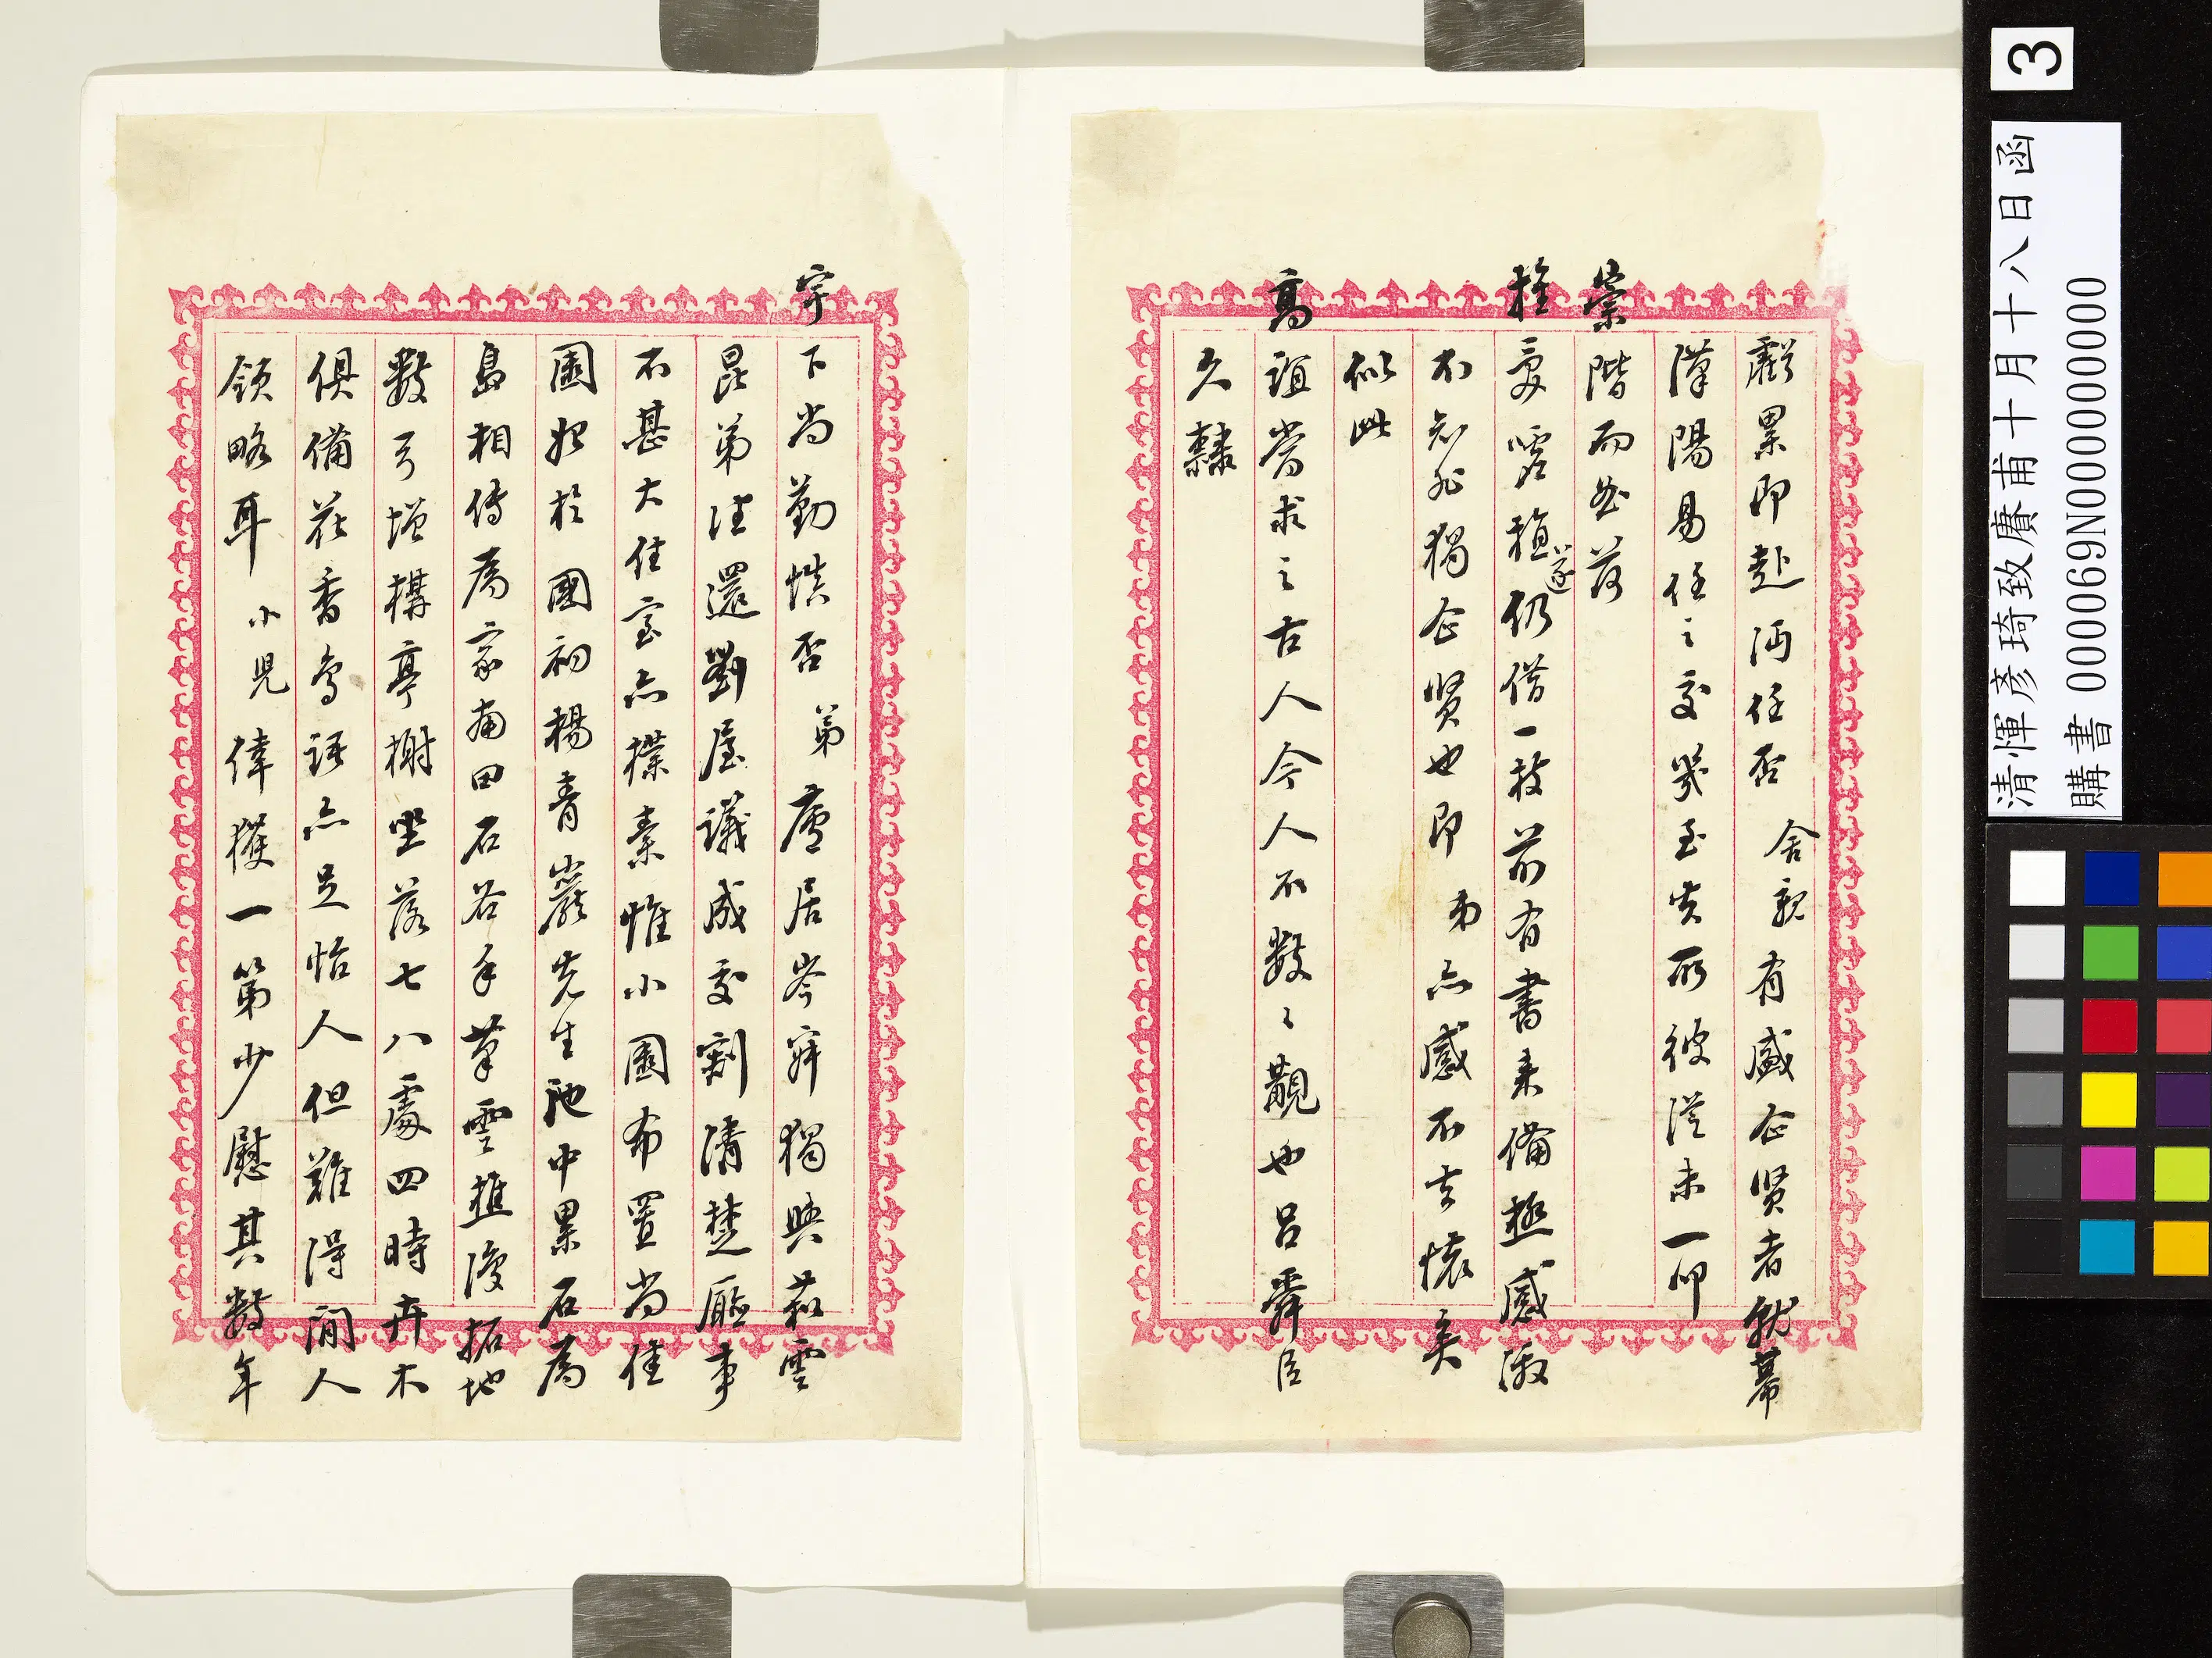 虧累即赴沔任否舍親有盛企賢者就幕
漢陽易任之交幾至失所彼從未一仰
崇階而培落
栓受噓植遂仍借一枝前有書來備極感激
不知非獨企賢也即弟亦感不去懷矣
似此
高誼當求之古人今人不數數覯也呂舜臣
久隸
宇下尚勤慎否弟廬居岑寂獨與菽雲
昆弟往還劉屋議成交割清楚廳事
不甚大住室亦樸素惟小園布置尚佳
園始於國初楊青巖先生池中累石為
島相傳為家南田石谷手筆雲樵後拓地
數弓增構亭榭坐落七八處四時卉木
俱備花香鳥語亦足怡人但難得閒人
領略耳小兒倖獲一第少慰其數年
3
清惲彥琦致賡甫十月十八日函
購書 000069N000000000